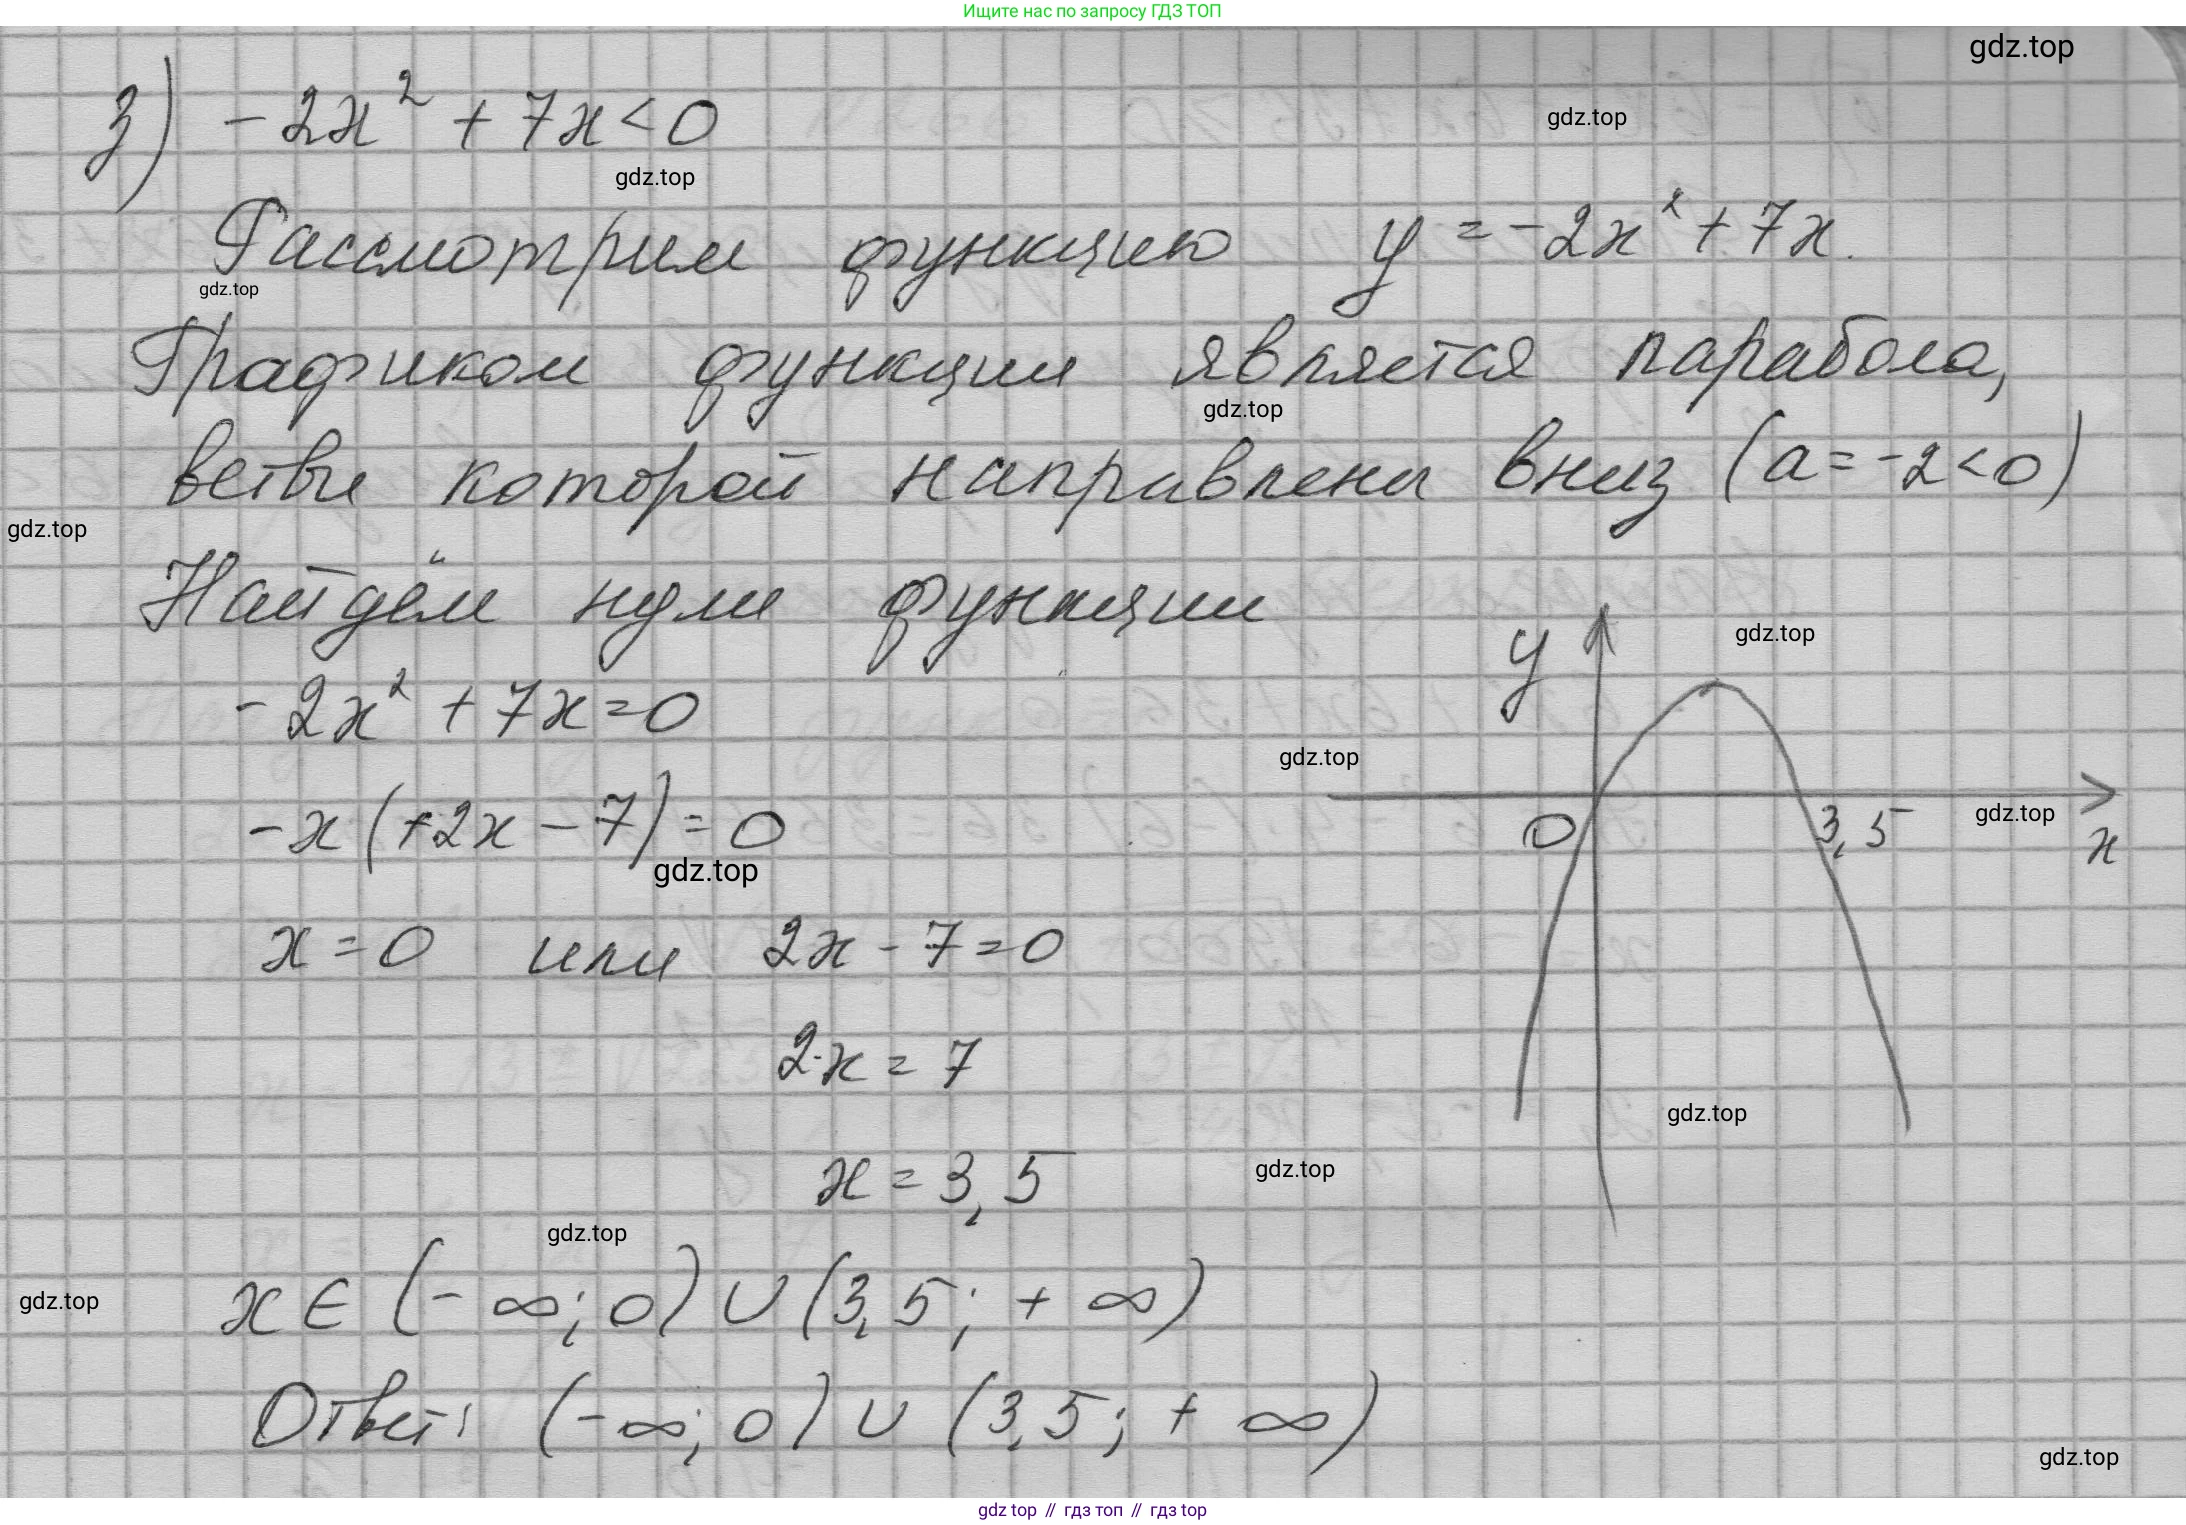 Ищите нас по запросу ГДЗ ТОП
gdz.top
з) -2x² + 7x < 0
gdz.top
gdz.top
Рассмотрим функцию y = -2x² + 7x.
gdz.top
Графиком функции является парабола,
gdz.top
ветви которой направлены вниз (a = -2 < 0)
gdz.top
Найдём нули функции
y
gdz.top
-2x² + 7x = 0
gdz.top
-x(+2x - 7) = 0
0
3,5
gdz.top
x
gdz.top
x = 0 или 2x - 7 = 0
2·x = 7
gdz.top
x = 3,5
gdz.top
gdz.top
x ∈ (-∞; 0) ∪ (3,5; +∞)
gdz.top
Ответ: (-∞; 0) ∪ (3,5; +∞)
gdz.top
gdz top // гдз топ // gdz top